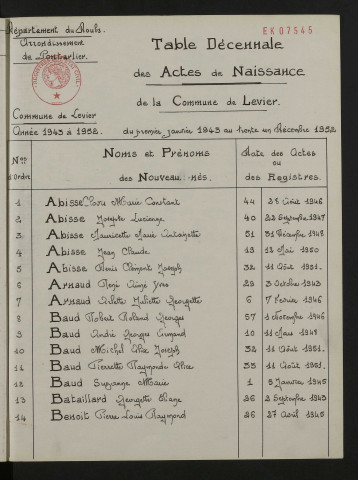 Département du Doubs.
Arrondissement
de Pontarlier.
Commune de Levier
Année 1943 à 1952.
EK07545
Table Décennale
des Actes de Naissance
de la Commune de Levier.
du premier janvier 1943 au trente un Décembre 1952
Nos d'Ordre
Noms et Prénoms
des Nouveau-nés.
Date des Actes
ou
des Registres.
1 Abisse Marie Constant 44 28 Août 1946
2 Abisse Lucienne 40 22 Septembre 1947
3 Abisse Mauricette Marie Antoinette 51 31 Décembre 1948
4 Abisse Jean Claude 13 12 Mai 1950
5 Abisse Denis Clément Joseph 32 11 Août 1951.
6 Arnaud René Aimé Yves 29 3 Octobre 1943
7 Arnaud Arlette Juliette Georgette 6 7 Février 1946
8 Baud Robert Roland Georges 57 1 Novembre 1946
9 Baud André Georges Armand 10 11 Mars 1948
10 Baud Michel Alix Joseph 32 11 Août 1951.
11 Baud Pierrette Raymonde Alice 33 11 Août 1951.
12 Baud Suzanne Marie 1 5 Janvier 1945
13 Bataillard Georgette Eliane 26 2 Septembre 1943
14 Benoit Pierre Louis Raymond 26 27 Août 1945